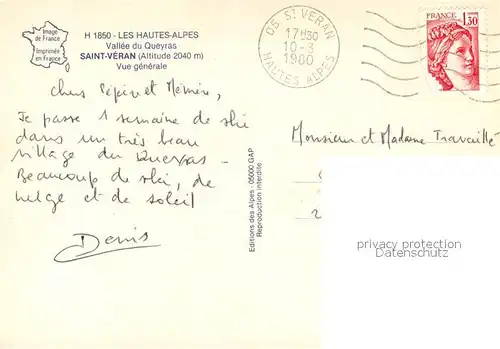 Image
de France
Imprimée
en France
H 1850 - LES HAUTES-ALPES
Vallée du Queyras
SAINT-VÉRAN (Altitude 2040 m)
Vue générale
05 ST VERAN
17H30
10-3
1980
HAUTES ALPES
FRANCE
1,30
Chers Pépin et Mémère,
Je passe 1 semaine de ski
dans un très beau
village du Queyras -
Beaucoup de ski, de
neige et de soleil
Denis
Editions des Alpes - 05000 GAP
Reproduction interdite
Monsieur et Madame Travaille
privacy protection
Datenschutz